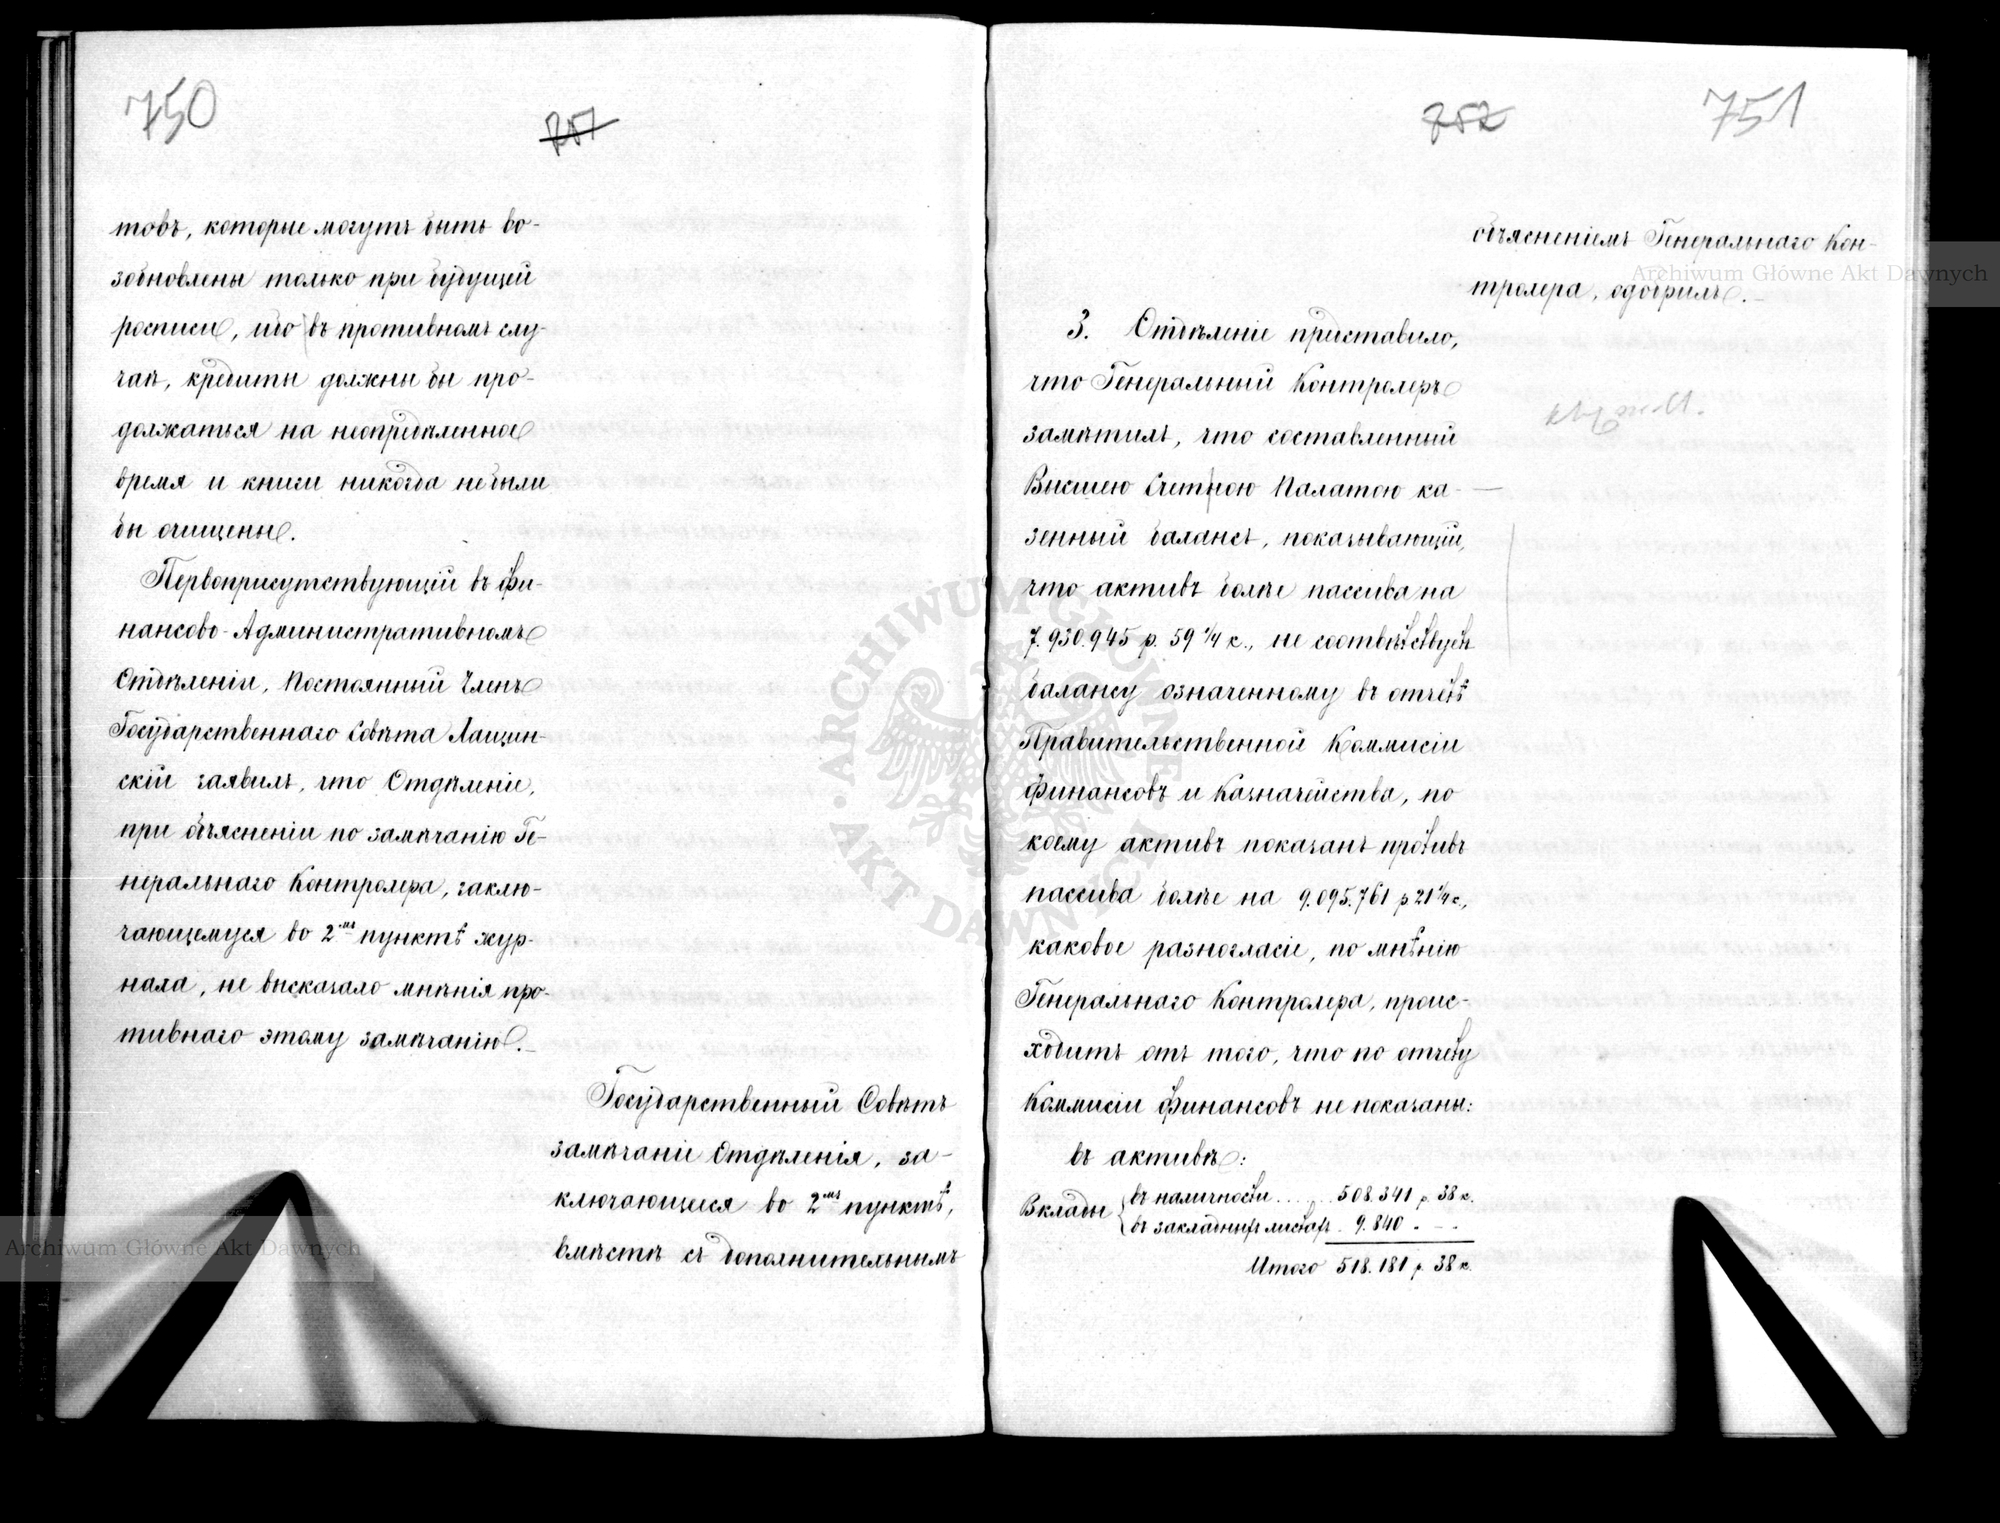 750
товъ, которые могутъ быть во-
зобновлены только при будущей
росписи, ибо въ противномъ слу-
чаѣ, кредиты должны бы про-
должаться на неопредѣленное
время и книги никогда не были
бы очищены.
Первоприсутствующій въ Фи-
нансово-Административномъ
Отдѣленіи, Постоянный Членъ
Государственнаго Совѣта Лащин-
скій заявилъ, что Отдѣленіе,
при объясненіи по замѣчанію Ге-
неральнаго Контролера, заклю-
чающемуся во 2мъ пунктѣ жур-
нала, не высказало мнѣнія про-
тивнаго этому замѣчанію.
Государственный Совѣтъ
замѣчаніе Отдѣленія, за-
ключающееся во 2мъ пунктѣ,
вмѣстѣ съ дополнительнымъ
752 751
объясненіемъ Генеральнаго Кон-
тролера, одобрилъ.
3. Отдѣленіе представило,
что Генеральный Контролеръ
замѣтилъ, что составленный
Высшею Счетною Палатою ка-
зенный балансъ, показывающій,
что активъ болѣе пассива на
7.930.945 р. 59 1/4 к., не соотвѣтствуетъ
балансу означенному въ отчетѣ
Правительственной Коммисіи
Финансовъ и Казначейства, по
коему активъ показанъ противъ
пассива болѣе на 9.095.761 р 21 1/4 к.,
каковое разногласіе, по мнѣнію
Генеральнаго Контролера, проис-
ходитъ отъ того, что по отчету
Коммисіи Финансовъ не показаны:
въ активѣ:
Вклады { въ наличности . . . . 508.341 р. 38 к.
въ закладныхъ листахъ . 9.840 . - -
Итого 518.181 р. 38 к.
ARCHIWUM GŁÓWNE AKT DAWNYCH
Archiwum Główne Akt Dawnych
Archiwum Główne Akt Dawnych